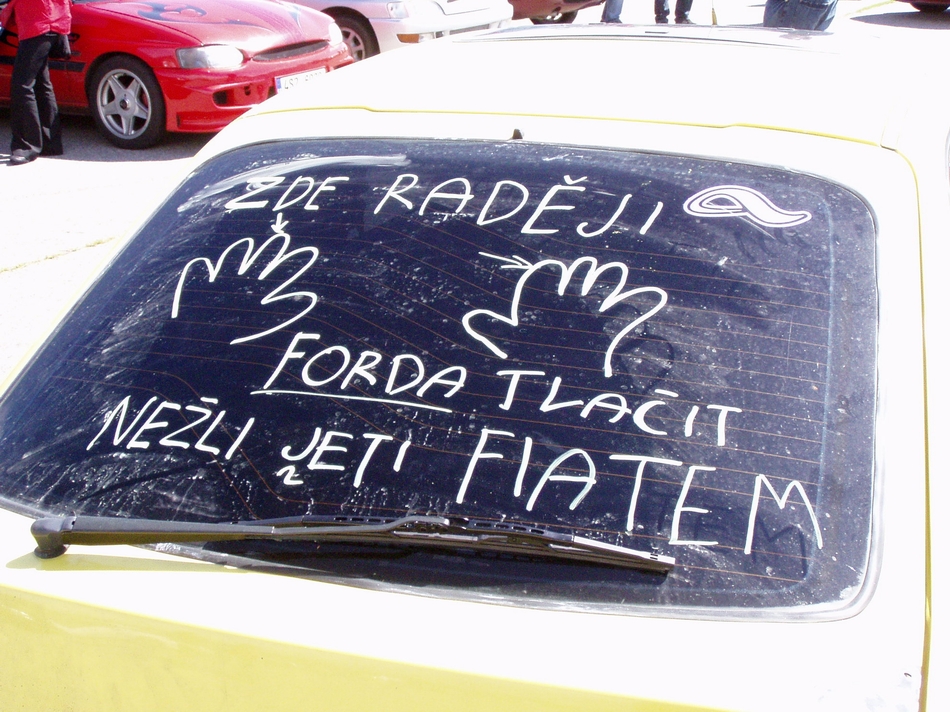 ZDE RADĚJI
FORDA TLAČIT
NEŽLI JETI FIATEM